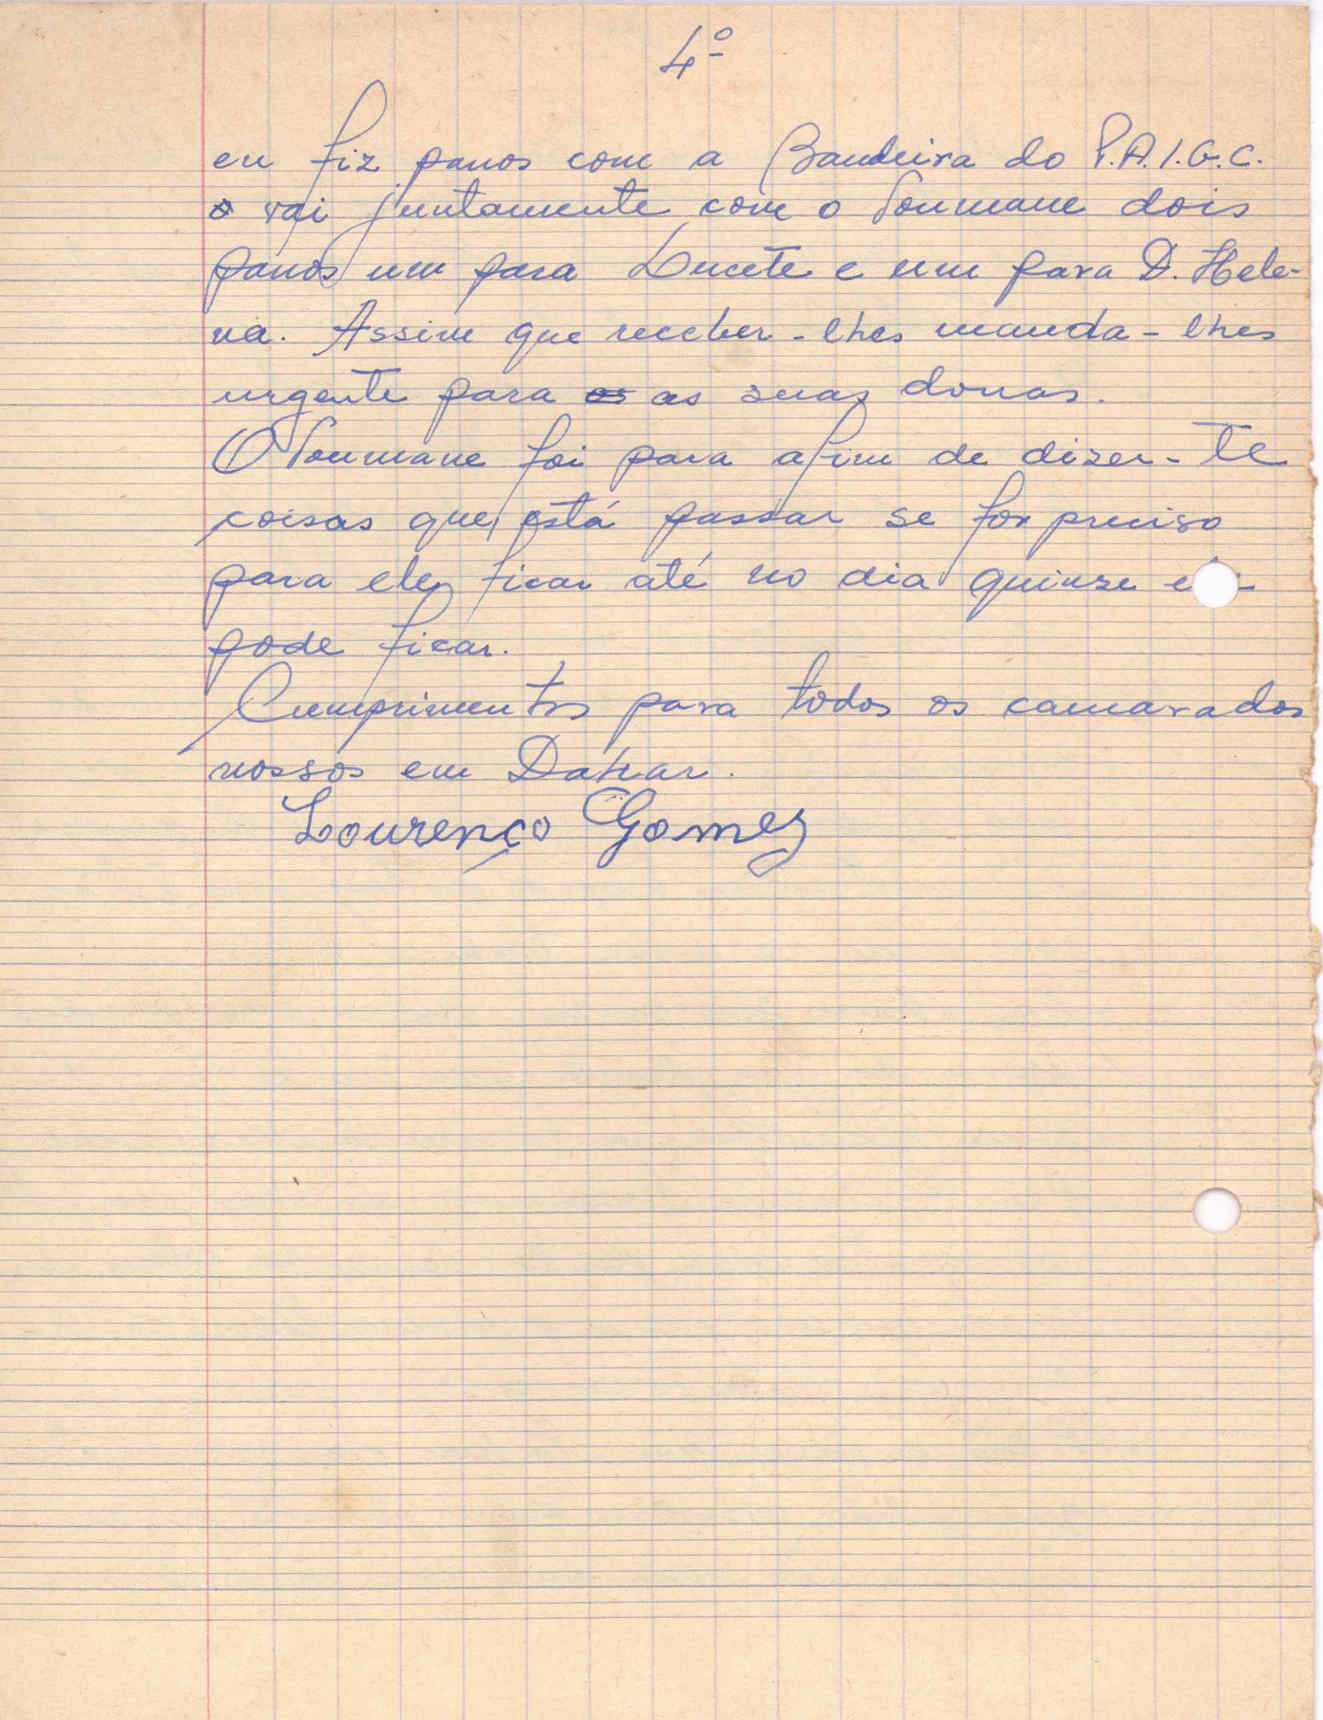 4º
eu fiz panos com a Bandeira do P.A.I.G.C.
e vai juntamente com o Soumane dois
panos um para Lucete e um para D. Hele-
na. Assim que receber-lhes manda-lhes
urgente para os as suas donas.
O Soumane foi para afim de dizer-te
coisas que está passar se for preciso
para ele ficar até no dia quinze
pode ficar.
Cumprimentos para todos os camaradas
nossos em Dakar.
Lourenço Gomes